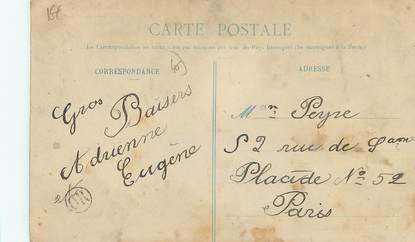 15F
CARTE POSTALE
La Correspondance au recto n'est pas acceptée par tous les Pays Étrangers (Se renseigner à la Poste)
CORRESPONDANCE
ADRESSE
Gros Baisers
Adrienne
et Eugène
OR
Man Peyre
52 rue de Sam
Placide No 52
Paris